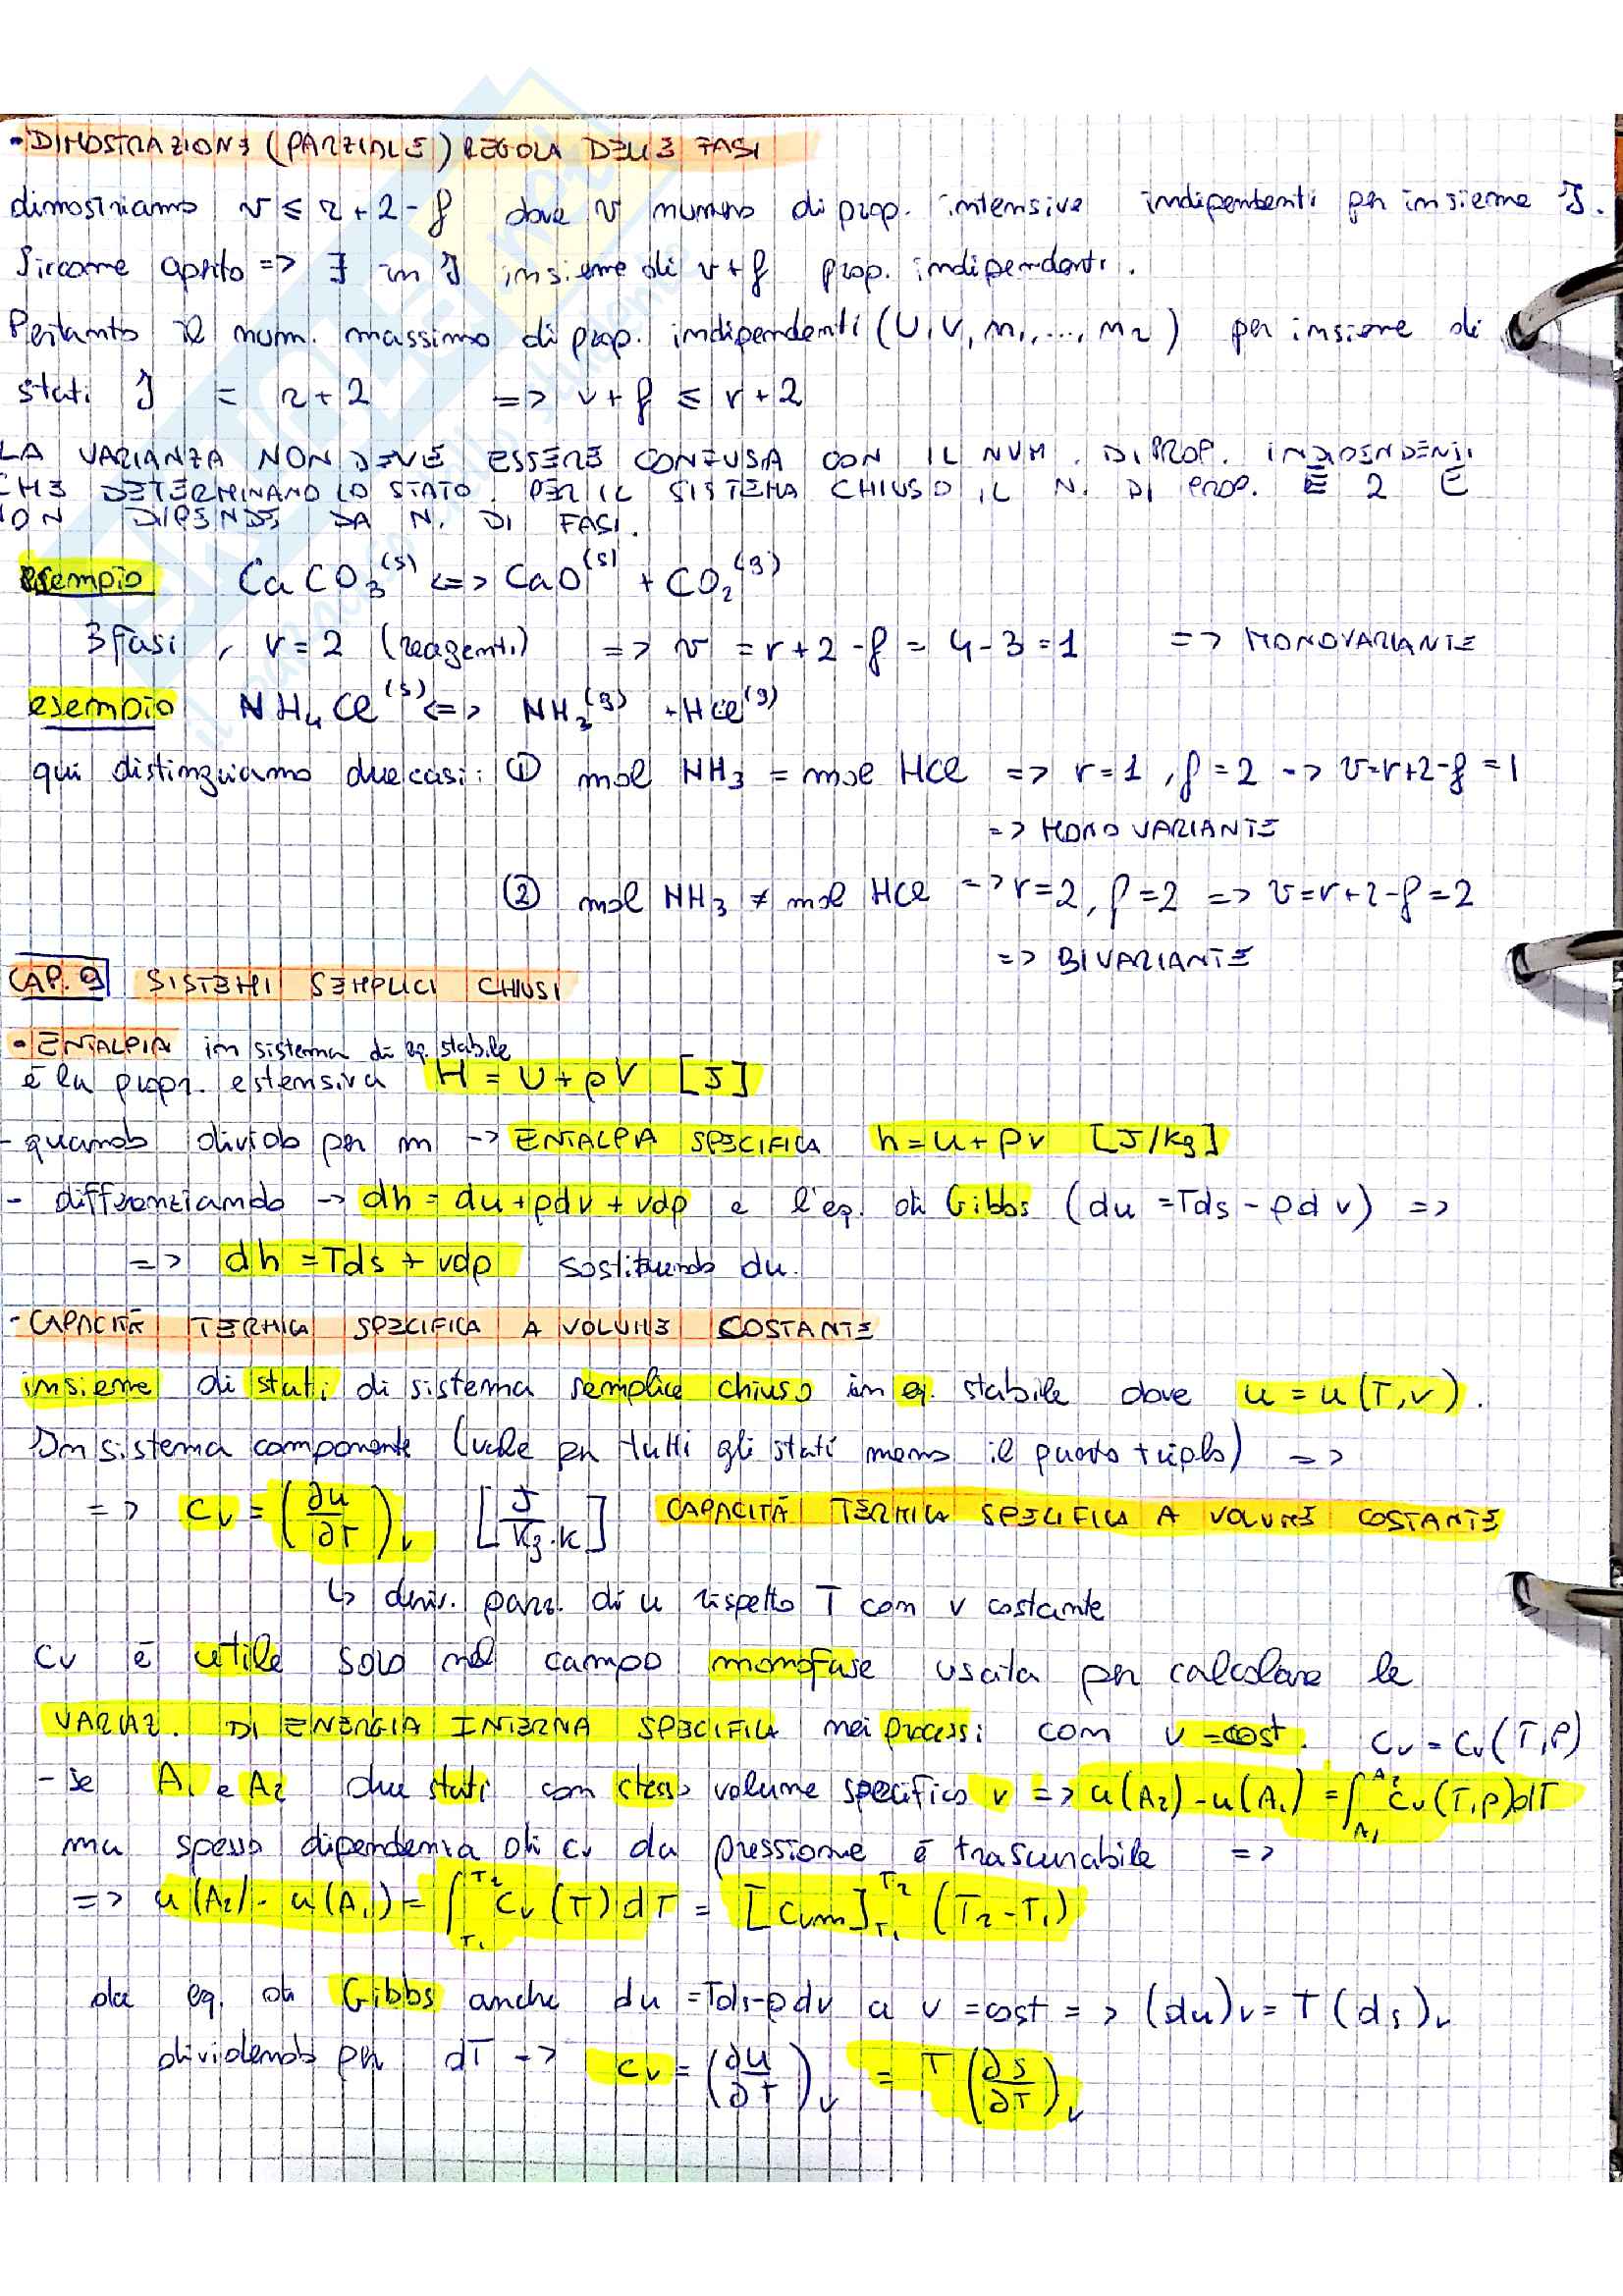 • DIMOSTRAZIONE (PARZIALE) REGOLA DELLE FASI
dimostriamo v ≤ r + 2 - f dove v numero di prop. intensive indipendenti per insieme J.
Siccome aperto => ∃ in J insieme di v + f prop. indipendenti.
Pertanto il num. massimo di prop. indipendenti (U, V, n₁, ..., n₂) per insieme di
stati J = r + 2 => v + f ≤ r + 2
LA VARIANZA NON DEVE ESSERE CONFUSA CON IL NUM. DI PROP. INDIPENDENTI
CHE DETERMINANO LO STATO. PER IL SISTEMA CHIUSO IL N. DI PROP. È 2 E
NON DIPENDE DA N. DI FASI.
esempio CaCO₃⁽ˢ⁾ <=> CaO⁽ˢ⁾ + CO₂⁽ᵍ⁾
3 fasi, r = 2 (reagenti) => v = r + 2 - f = 4 - 3 = 1 => MONOVARIANTE
esempio NH₄Cl⁽ˢ⁾ <=> NH₃⁽ᵍ⁾ + HCl⁽ᵍ⁾
qui distinguiamo due casi: ① mol NH₃ = mol HCl => r = 1, f = 2 -> v = r + 2 - f = 1
=> MONOVARIANTE
② mol NH₃ ≠ mol HCl => r = 2, f = 2 => v = r + 2 - f = 2
=> BIVARIANTE
CAP. 9 SISTEMI SEMPLICI CHIUSI
• ENTALPIA in sistema di eq. stabile
è la propr. estensiva H = U + pV [J]
- quando divido per m -> ENTALPIA SPECIFICA h = u + pv [J/kg]
- differenziando -> dh = du + pdv + vdp e l'eq. di Gibbs (du = Tds - pdv) =>
=> dh = Tds + vdp sostituendo du.
• CAPACITÀ TERMICA SPECIFICA A VOLUME COSTANTE
insieme di stati di sistema semplice chiuso in eq. stabile dove u = u(T, v).
In sistema componente (vale per tutti gli stati meno il punto triplo) =>
=> cᵥ = (∂u/∂T)ᵥ [J/kg·K] CAPACITÀ TERMICA SPECIFICA A VOLUME COSTANTE
↳ deriv. parz. di u rispetto T con v costante
cv è utile solo nel campo monofase usata per calcolare le
VARIAZ. DI ENERGIA INTERNA SPECIFICA nei processi con v = cost. cv = cv(T, p)
- se A₁ e A₂ due stati con stesso volume specifico v => u(A₂) - u(A₁) = ∫_A₁^A₂ cv(T, p) dT
ma spesso dipendenza di cv da pressione è trascurabile =>
=> u(A₂) - u(A₁) = ∫_T₁^T₂ cv(T) dT = [cvm]_T₁^T₂ (T₂ - T₁)
da eq. di Gibbs anche du = Tds - pdv a v = cost => (du)ᵥ = T(ds)ᵥ
dividendo per dT -> cv = (∂u/∂T)ᵥ = T(∂s/∂T)ᵥ